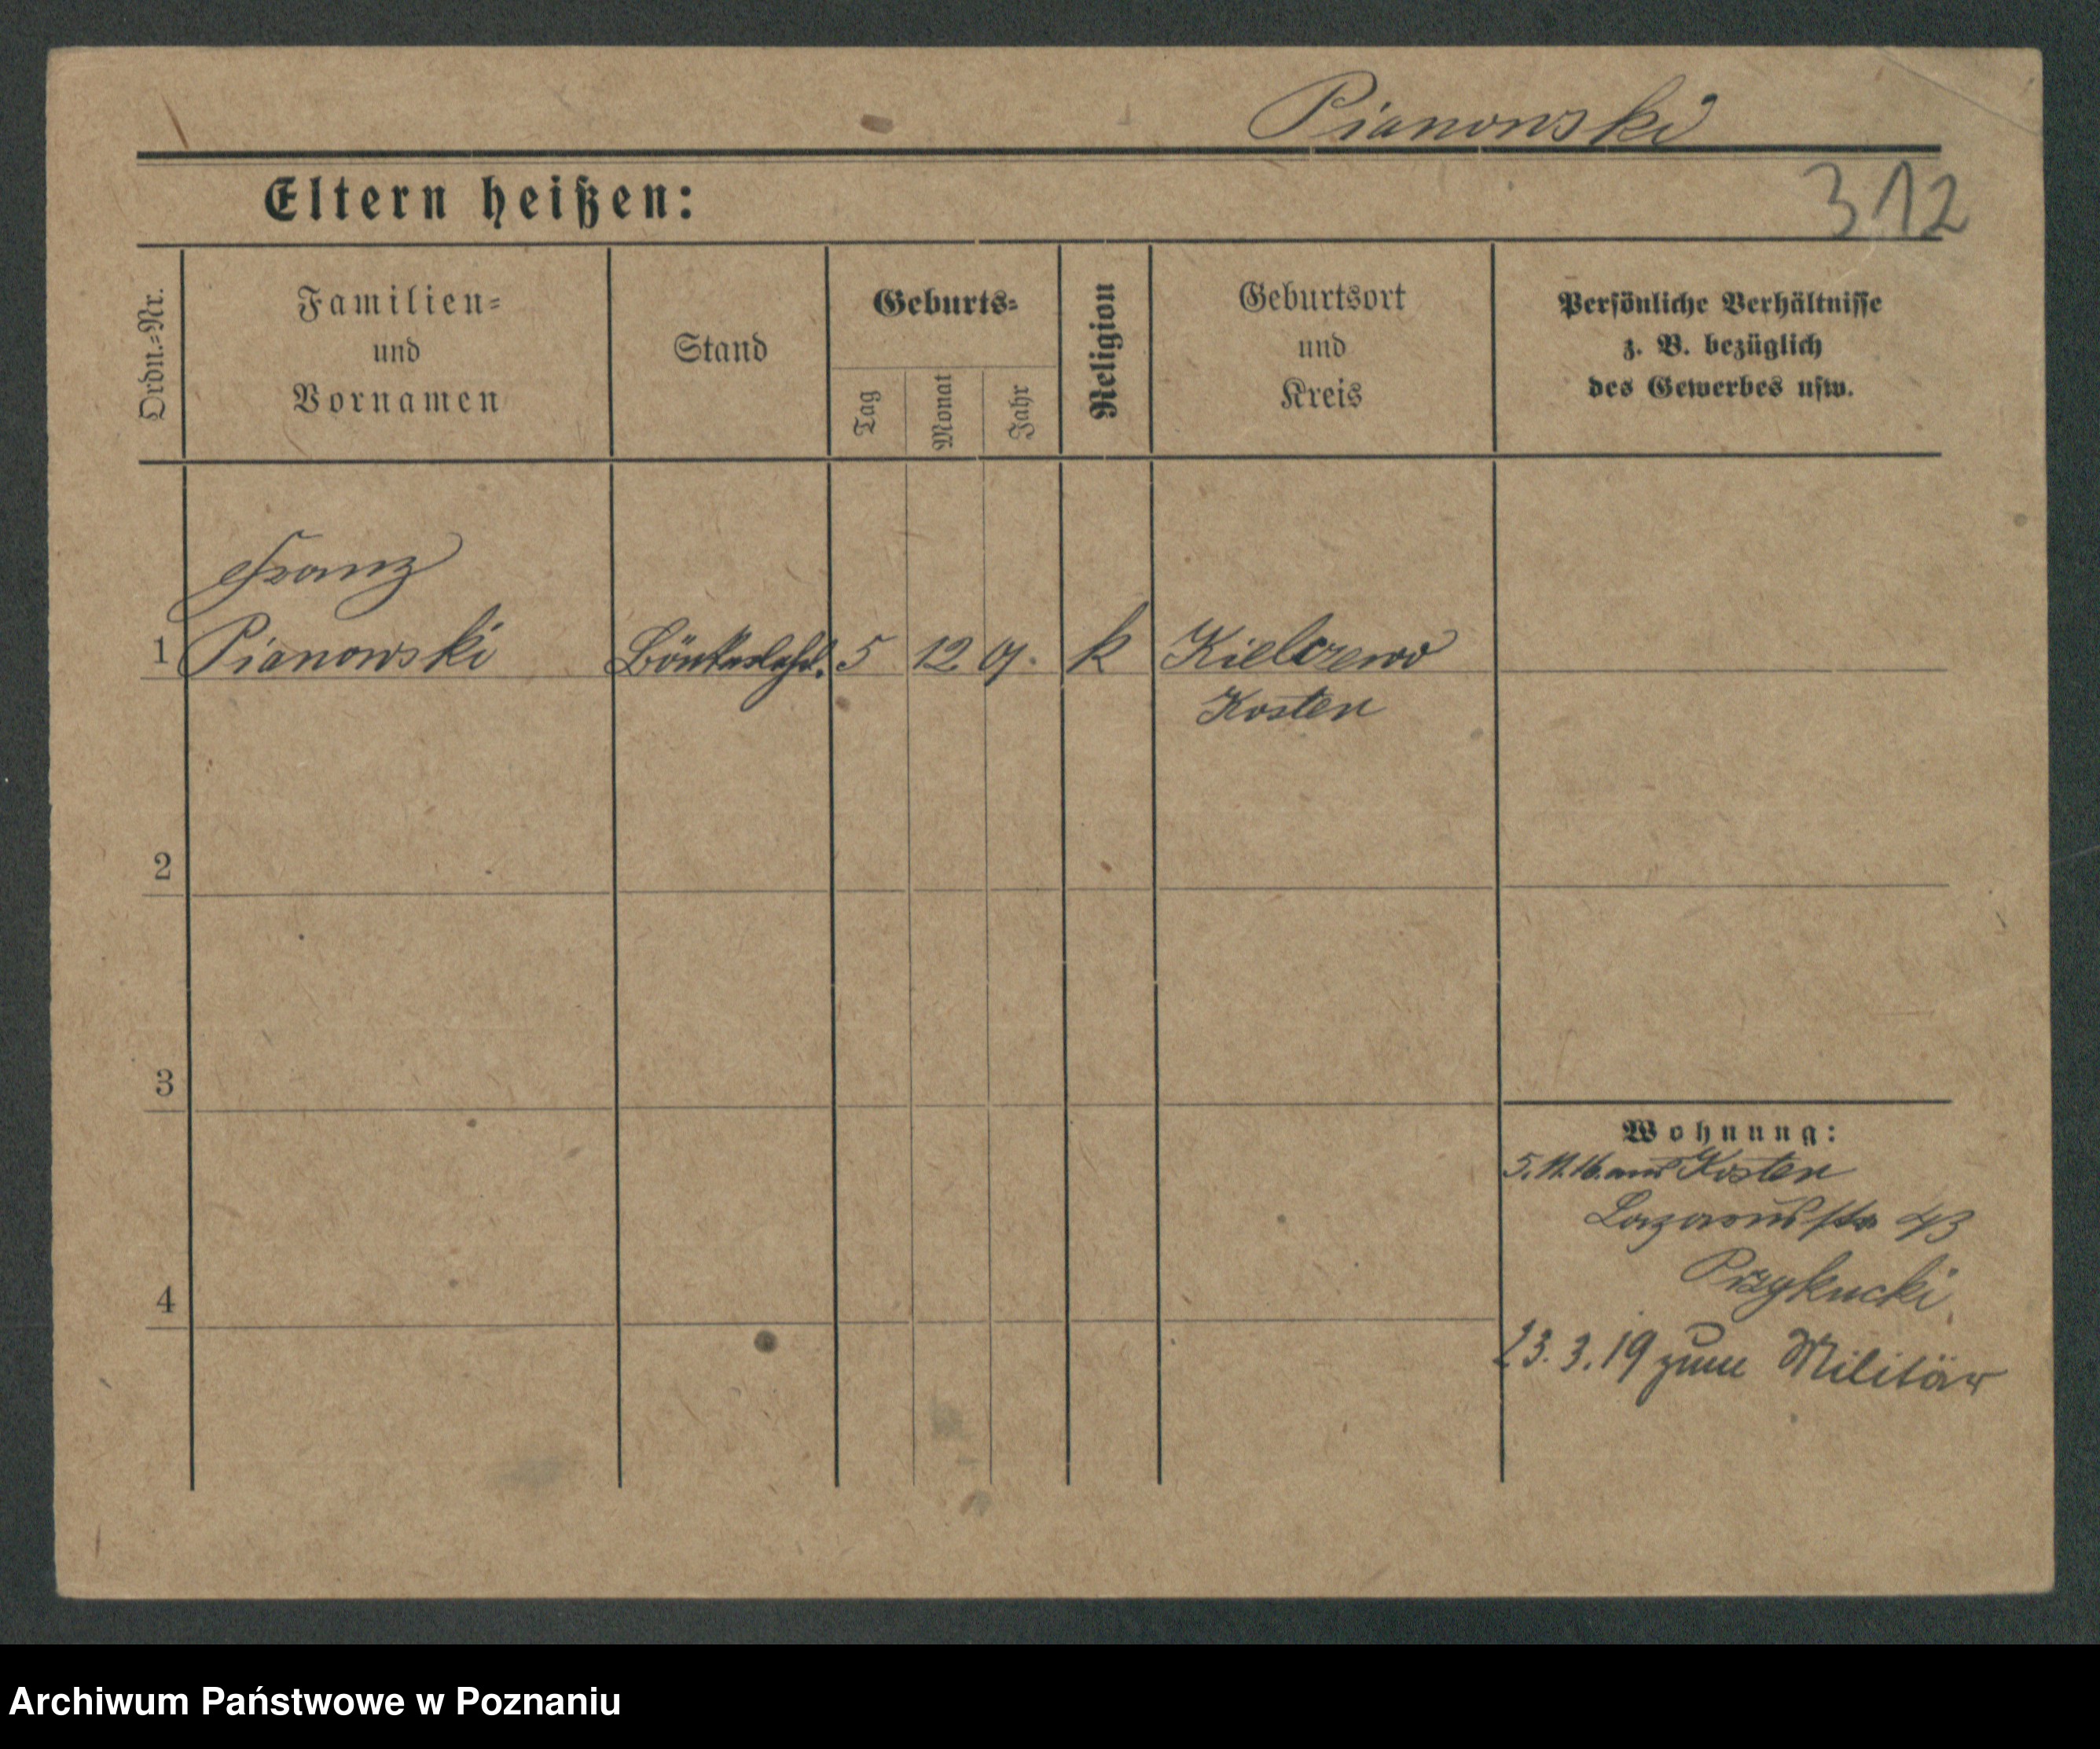 Pianowski
Eltern heißen:
312
Ordn.-Nr.
Familien-
und
Vornamen
Stand
Geburts-
Tag
Monat
Jahr
Religion
Geburtsort
und
Kreis
Persönliche Verhältnisse
z. B. bezüglich
des Gewerbes usw.
Franz
1 Pianowski 5 12 k Kielczewo
Kosten
2
3
4
Wohnung:
5.11.16. aus Kosten
Lazarusstr 43
Przykucki
23.3.19 zum Militär
Archiwum Państwowe w Poznaniu